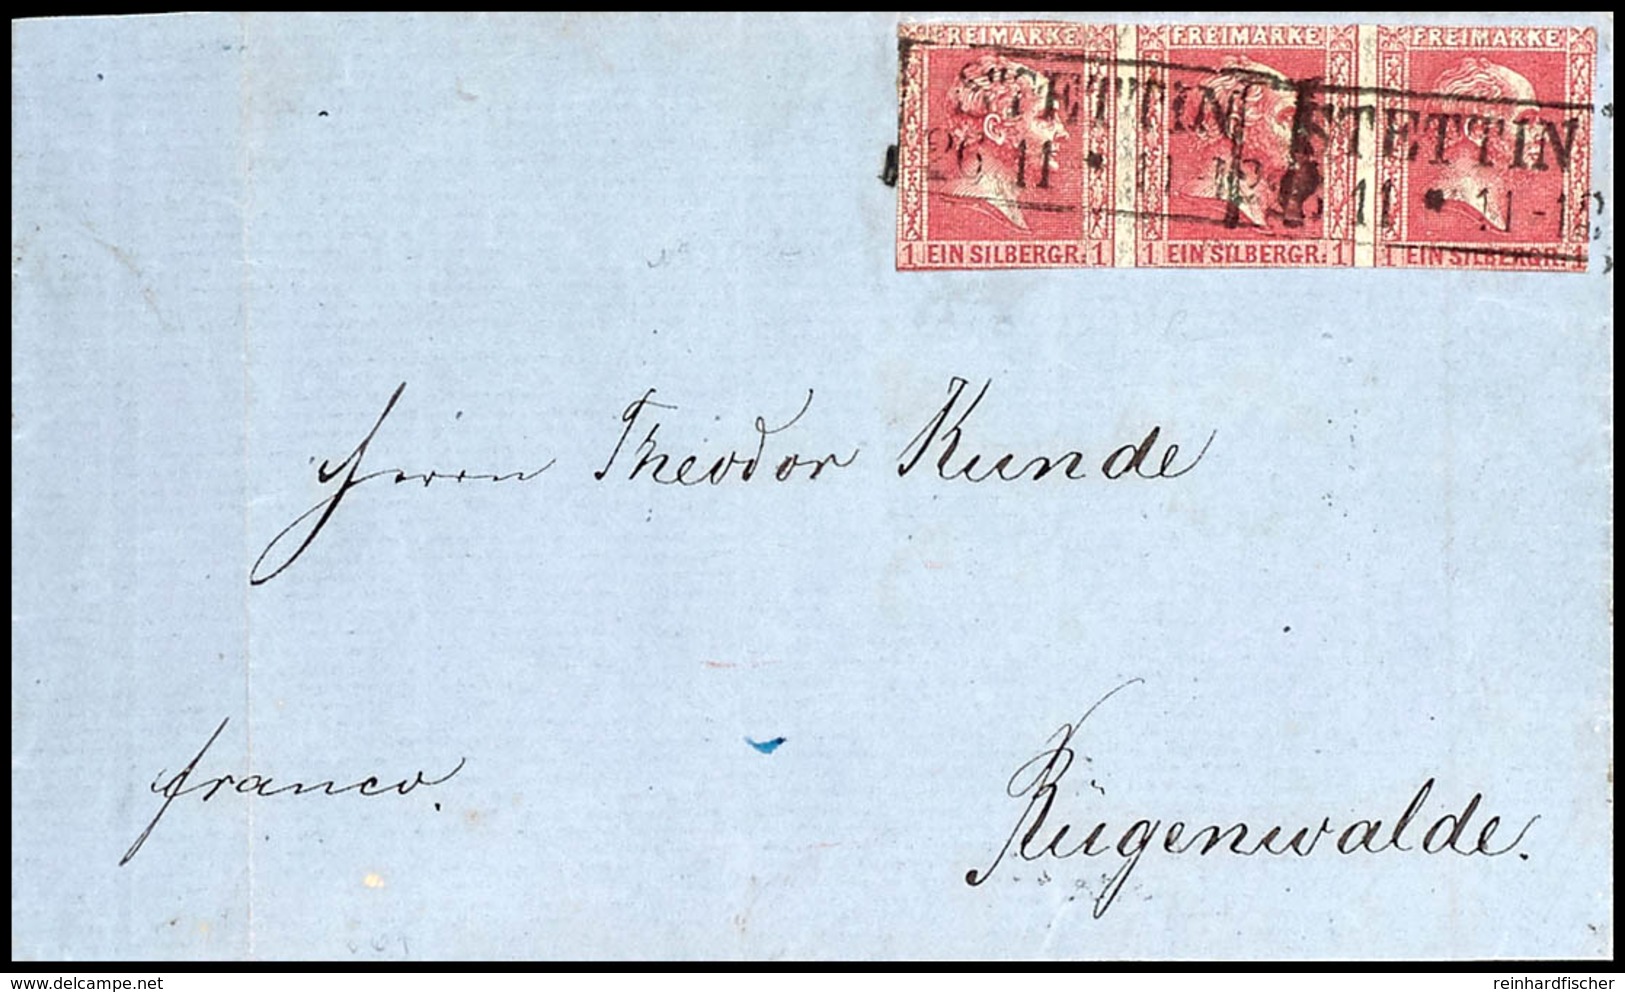 FREIMARKE FREIMARKE FREIMARKE
STETTIN STETTIN
26 11 * 11-12 26 11 * 11-12
1 EIN SILBERGR. 1 1 EIN SILBERGR. 1 1 EIN SILBERGR. 1
Herrn Theodor Kunde
franco.
Rügenwalde.
delcampe.net
reinhardfischer